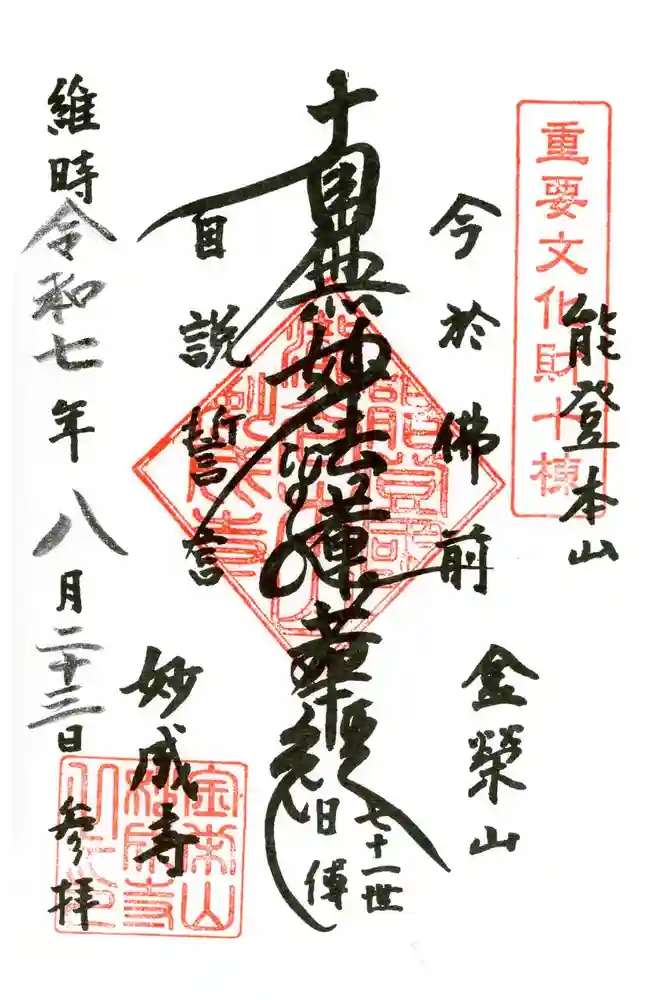 重要文化財十棟
能登本山
金榮山
今於佛前
南無妙法蓮華経
七十一世
日傳
自説誓言
妙成寺
維時令和七年八月二十三日参拝